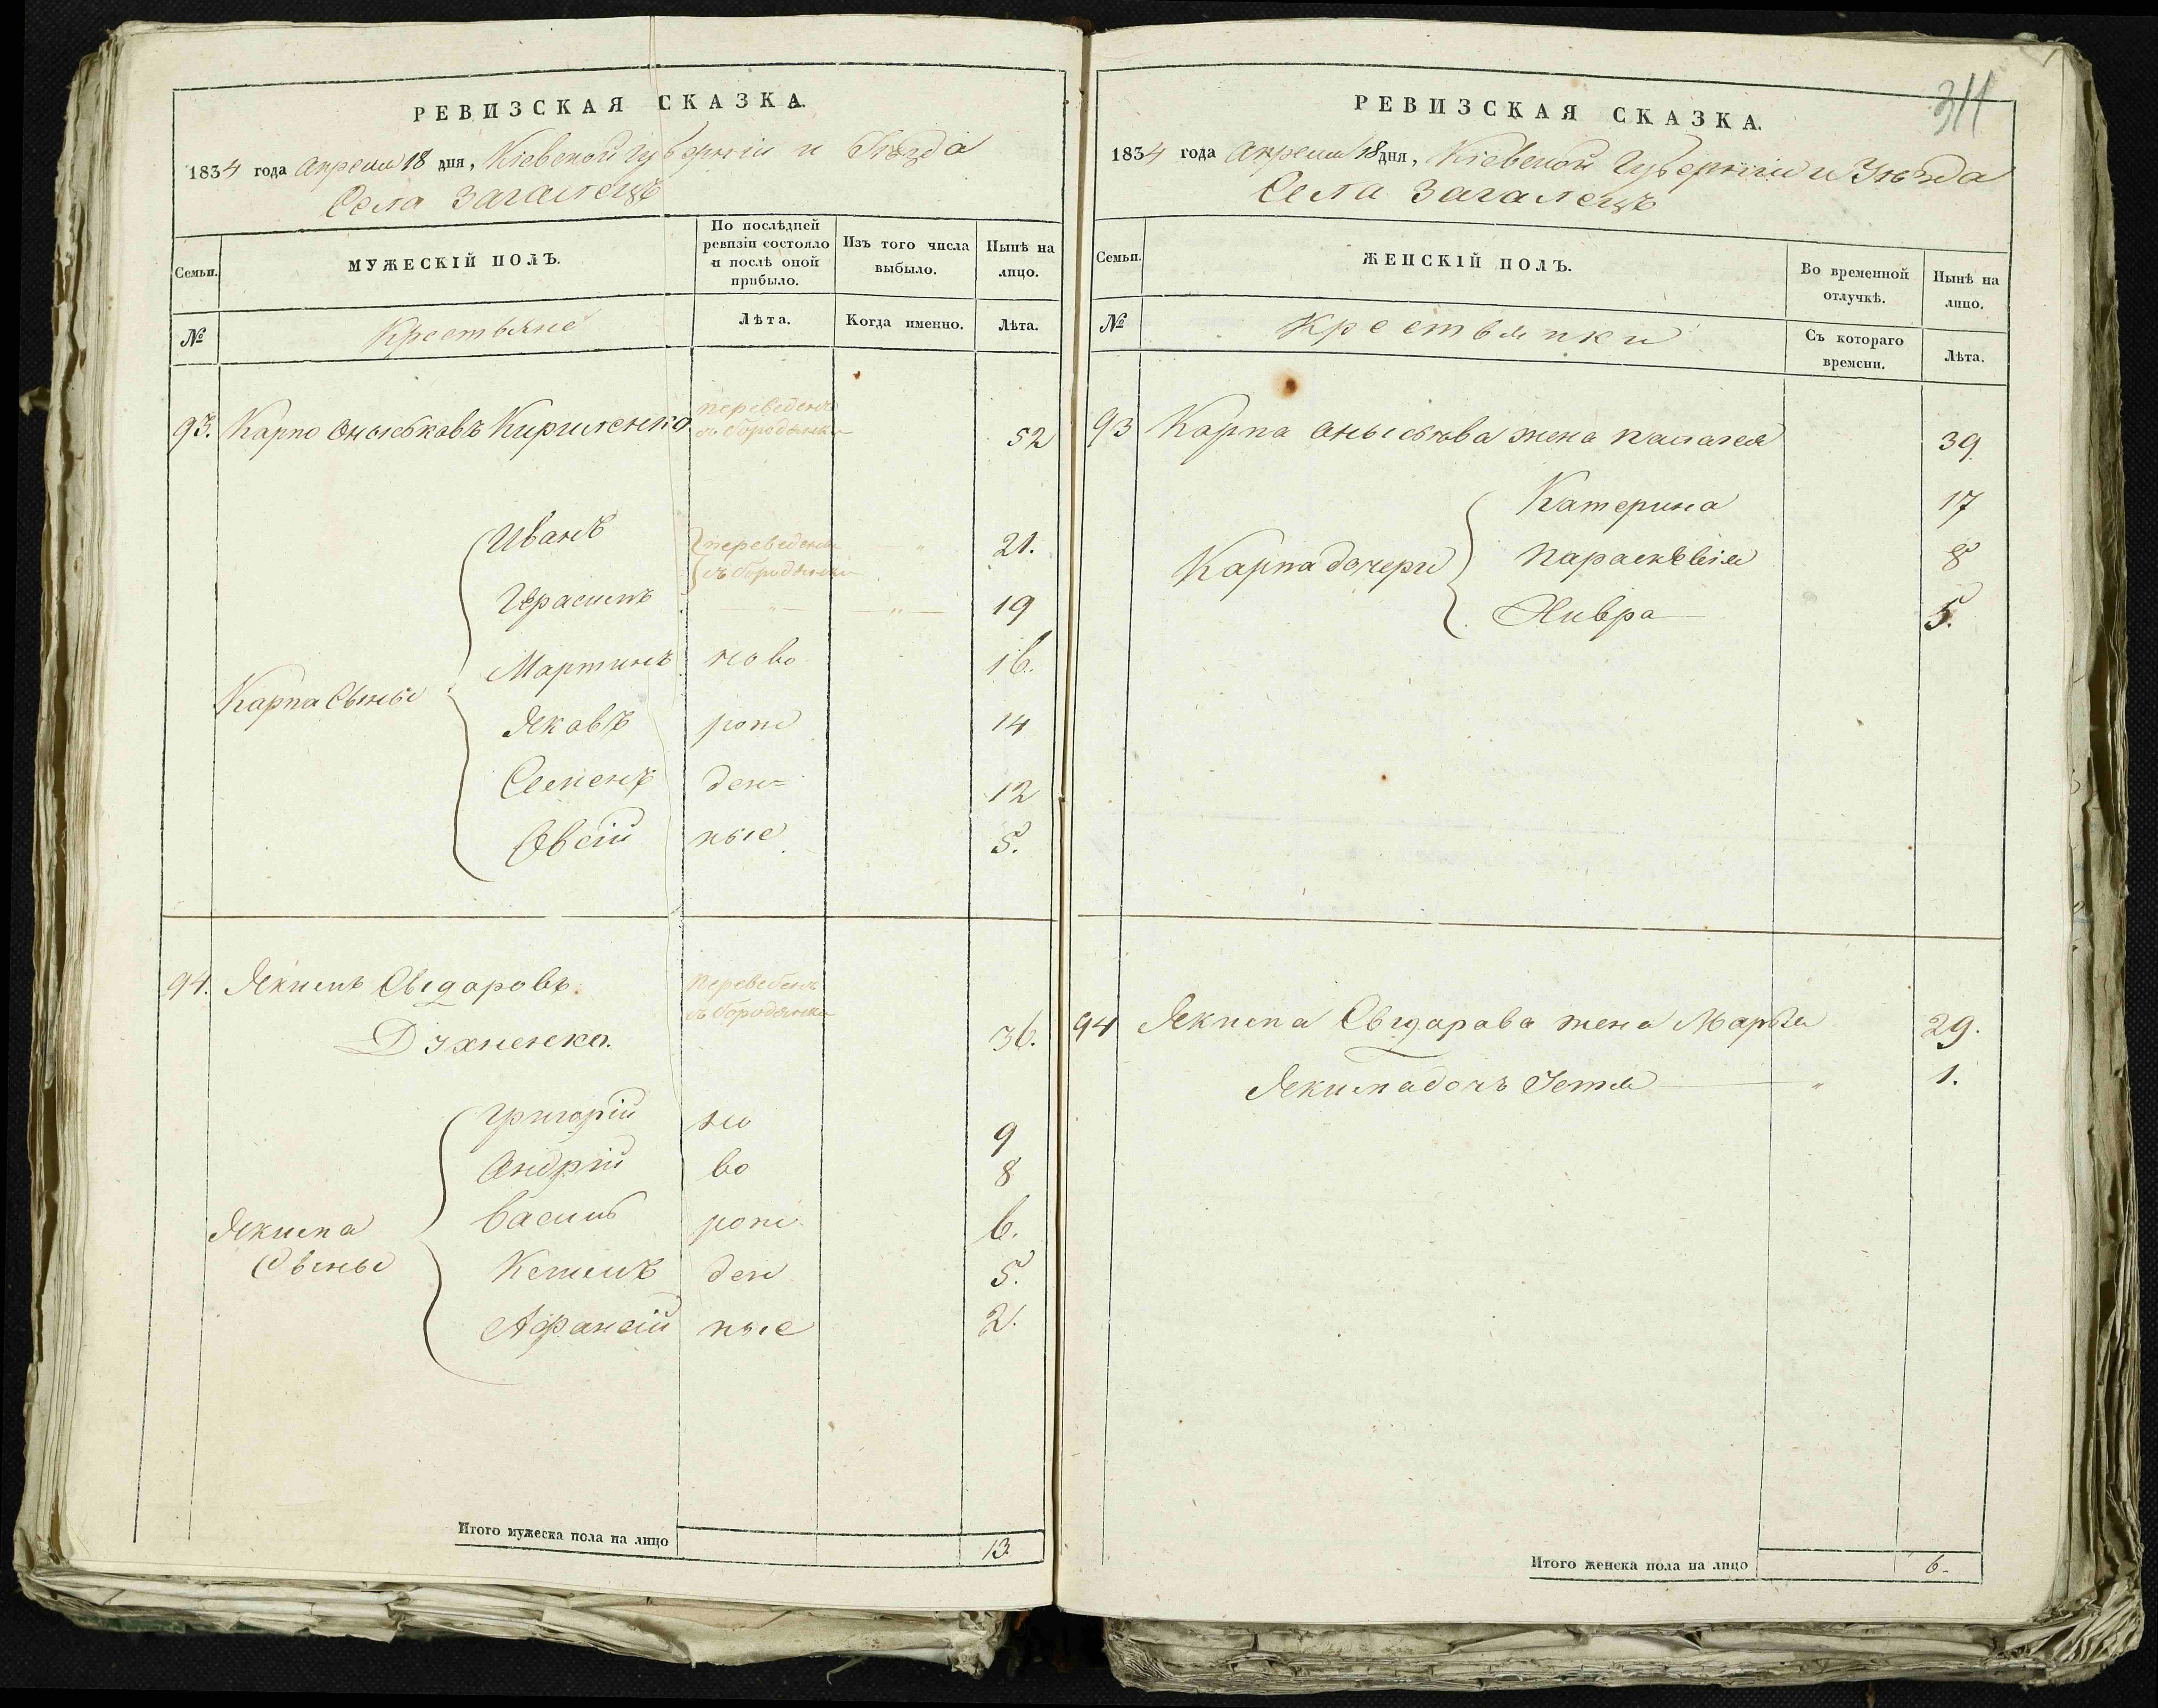 РЕВИЗСКАЯ СКАЗКА.
1834 года Апреля 18 дня, Кіевской Губерніи и Уѣзда
Села Загалецъ
Семьи.
МУЖЕСКІЙ ПОЛЪ.
По послѣдней ревизіи состояло и послѣ оной прибыло.
Изъ того числа выбыло.
Нынѣ на лицо.
№
Крестьяне
Лѣта.
Когда именно.
Лѣта.
93. Карпо Оныськовъ Кириленко переведенъ съ Бородянки 52
Иванъ переведены съ Бородянки " 21.
Герасимъ " " 19
Мартинъ ново 16.
Карпа Сыны
Яковъ рож 14
Семенъ ден- 12
Овсій ные 5.
94. Якимъ Сыдаровъ переведенъ съ Бородянки
Духненко. 36.
Григорій но 9
Андрій во 8
Василь рож 6.
Якима
Сыны
ден 5.
Афансій ные 2.
Итого мужеска пола на лицо 13
311
РЕВИЗСКАЯ СКАЗКА.
1834 года Апреля 18 дня, Кіевской Губерніи и Уѣзда
Села Загалецъ
Семьи.
ЖЕНСКІЙ ПОЛЪ.
Во временной отлучкѣ.
Нынѣ на лицо.
№
Крестьянки
Съ котораго времени.
Лѣта.
93 Карпа Оныськова жена Палагея 39
Катерина 17
Карпа дочери Параскѣвія 8
Хивря 5.
94 Якима Сыдарова жена Марья 29.
Якима дочь Устя " 1.
Итого женска пола на лицо 6-